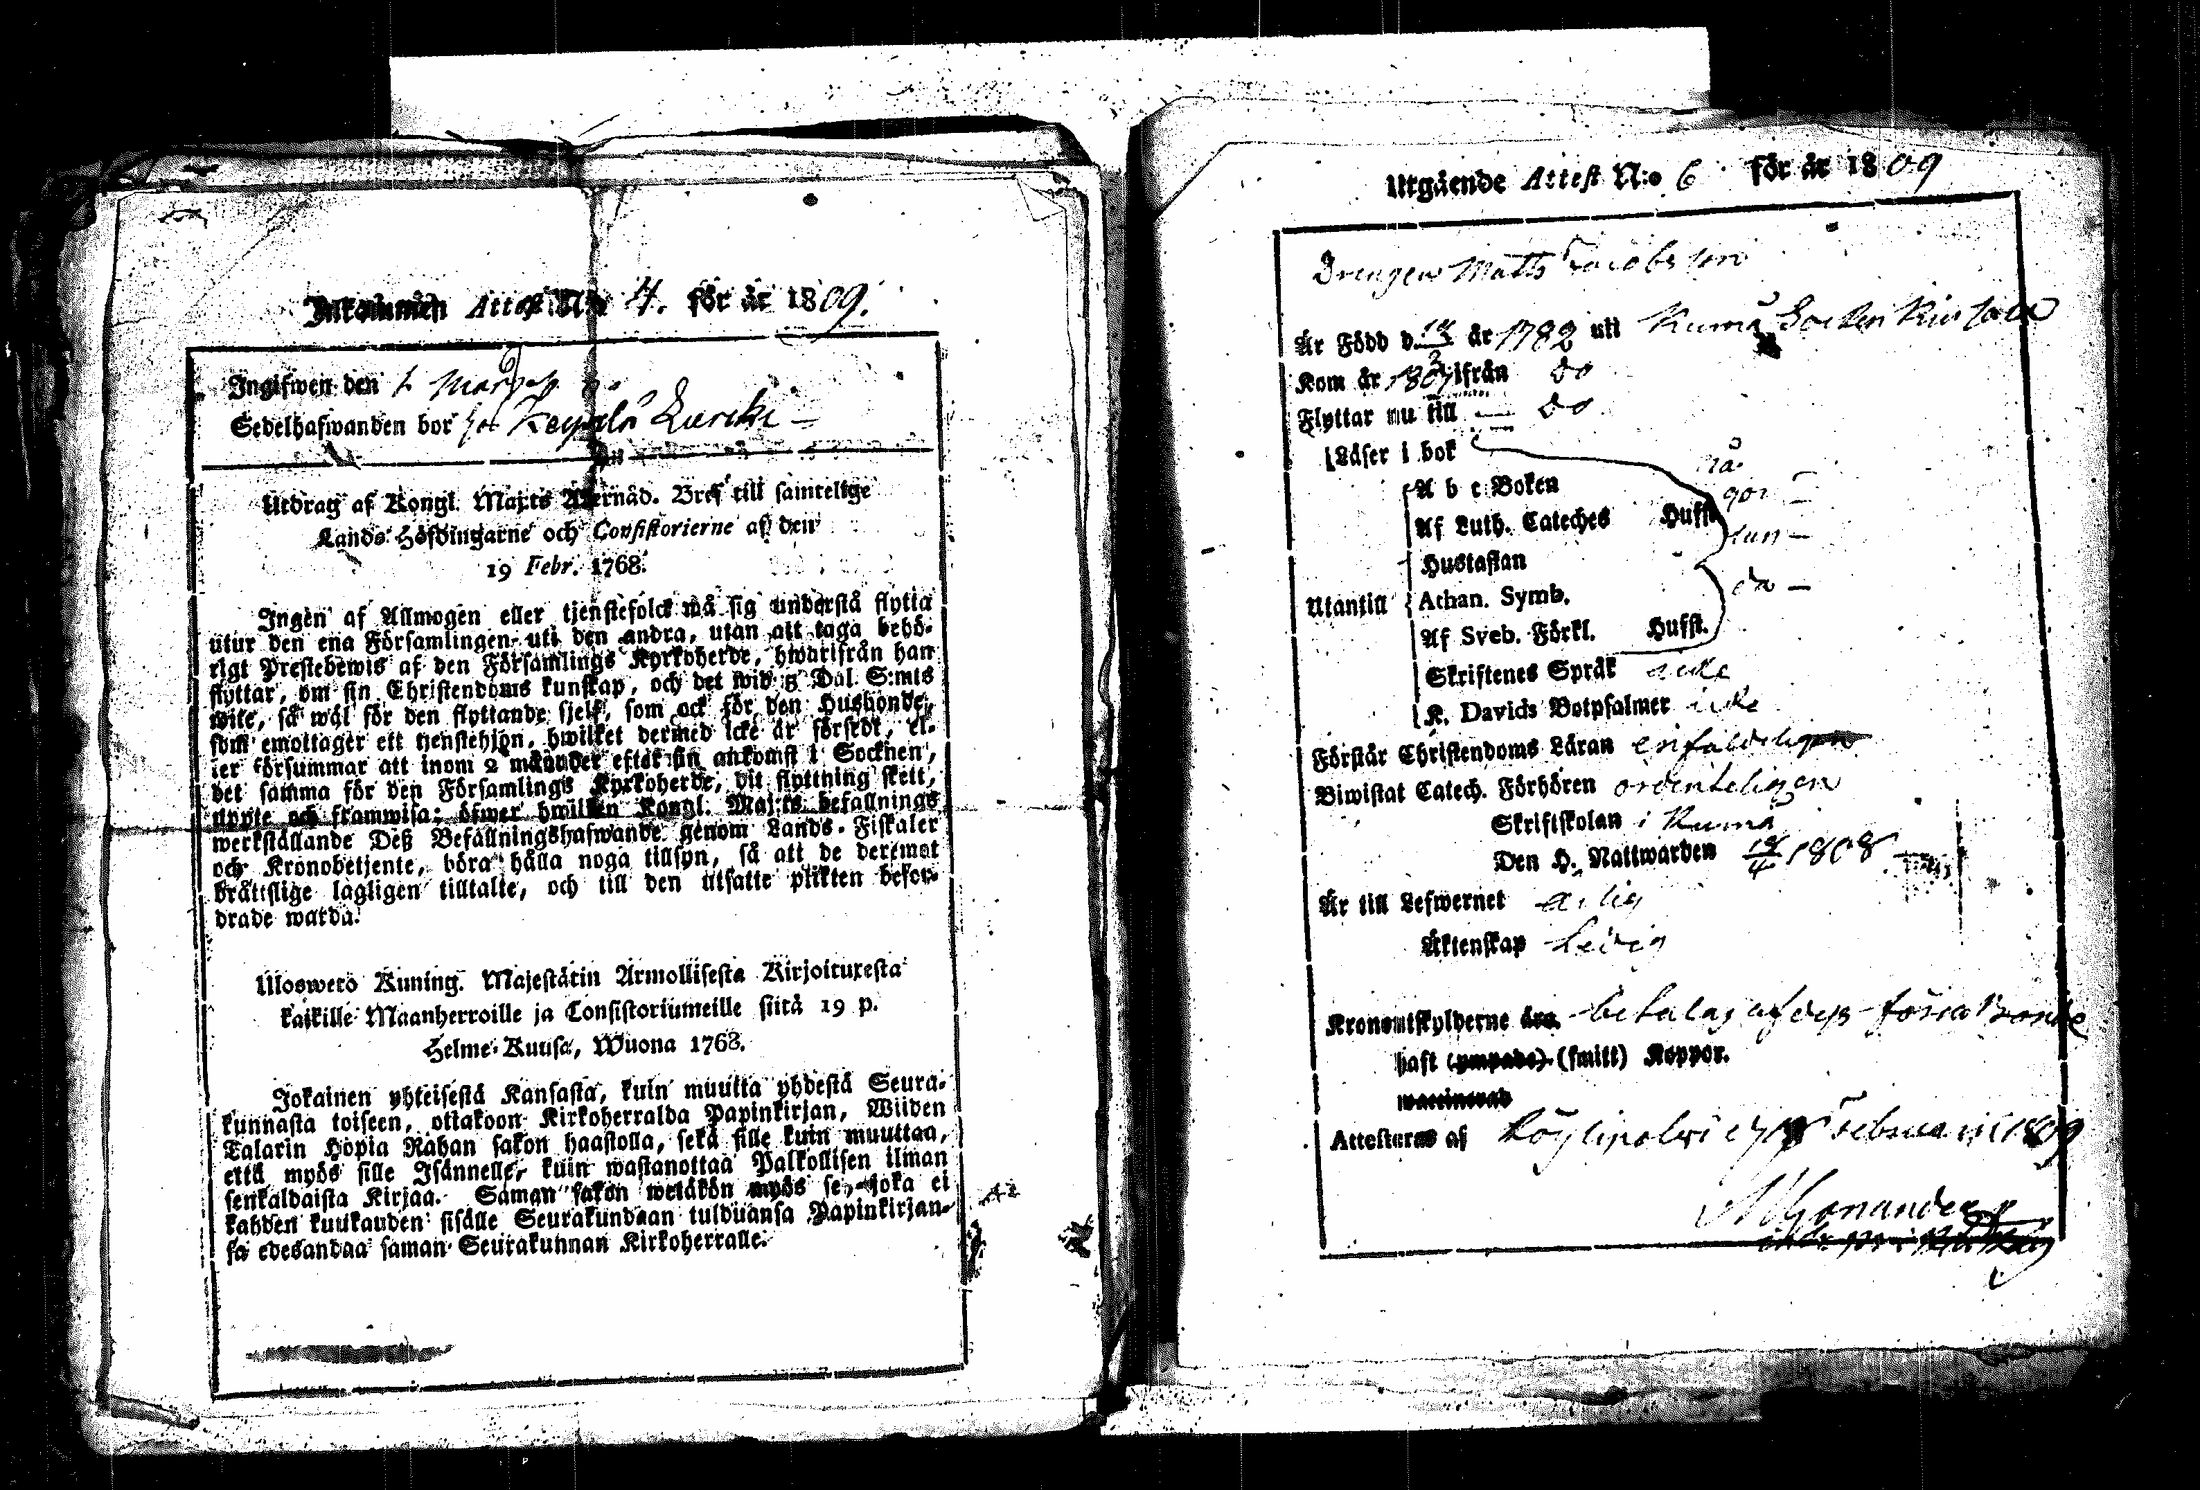 Inkommen Attest N:o 4. för år 1809.
Ingifwen den 1 Mars
Sedelhafwanden bor hos
Utdrag af Kongl. Maj:ts Allernåd. Bref till samtelige
Lands-Höfdingarne och Consistorierne af den
19 Febr. 1768.
Ingen af Allmogen eller tjenstefolck må sig understå flytta
utur den ena Församlingen uti den andra, utan att taga behö-
rigt Prestebewis af den Församlings Kyrkoherde, hwarifrån han
flyttar, om sin Christendoms kunskap, och det wid 5 Dal. S:mts
wite, så wäl för den flyttande sjelf, som ock för den Husbonde,
som emottager ett tjenstehjon, hwilket dermed icke är försedt, el-
ler försummar att inom 2 månader efter sin ankomst i Socknen,
det samma för den Församlings Kyrkoherde, dit flyttning skett,
uppte och framwisa; öfwer hwilken Kongl. Maj:ts befallnings
werkställande Deß Befallningshafwande genom Lands-Fiskaler
och Kronobetjente, böra hålla noga tillsyn, så att de deremot
bråttslige lagligen tilltalte, och till den utsatte plikten befor-
drade warda.
Uloswetö Kuning. Majestätin Armollisesta Kirjoituxesta
kaikille Maanherroille ja Consistoriumeille siitä 19 p.
Helme-Kuusa, Wuona 1768.
Jokainen yhteisestä Kansasta, kuin muutta yhdestä Seura-
kunnasta toiseen, ottakoon Kirkoherralda Papinkirjan, Wiiden
Talarin Hopia Rahan sakon haastolla, sekä sille kuin muuttaa,
että myös sille Isännelle, kuin wastanottaa Palkollisen ilman
senkaldaista Kirjaa. Saman sakon wetäkön myös se, joka ei
kahden kuukauden sisälle Seurakundaan tulduansa Papinkirjan-
sa edesandaa saman Seurakunnan Kirkoherralle.
Utgående Attest N:o 6 för år 1809
Drengen Matts Jacobsson
Är Född d. år 1782 uti Kumå Socken
Kom år ifrån do
Flyttar nu till do
Läser i bok
A b c Boken
Af Luth. Cateches Hufst.
Hustaflan
Utantill Athan. Symb.
Af Sveb. Förkl. Hufst.
Skriftenes Språk icke
K. Davids Botpsalmer icke
Förstår Christendoms Läran enfaldeligen
Biwistat Catech. Förhören ordenteligen
Skriftskolan i Kumå
Den H. Nattwarden 1808
Är till Lefwernet ärlig
Äktenskap Ledig
Kronoutskylderne äro betalas af dess förra Bonde
haft (ympade) (smitt) Koppor.
waccinerad
Attesteras af Februarii 1809